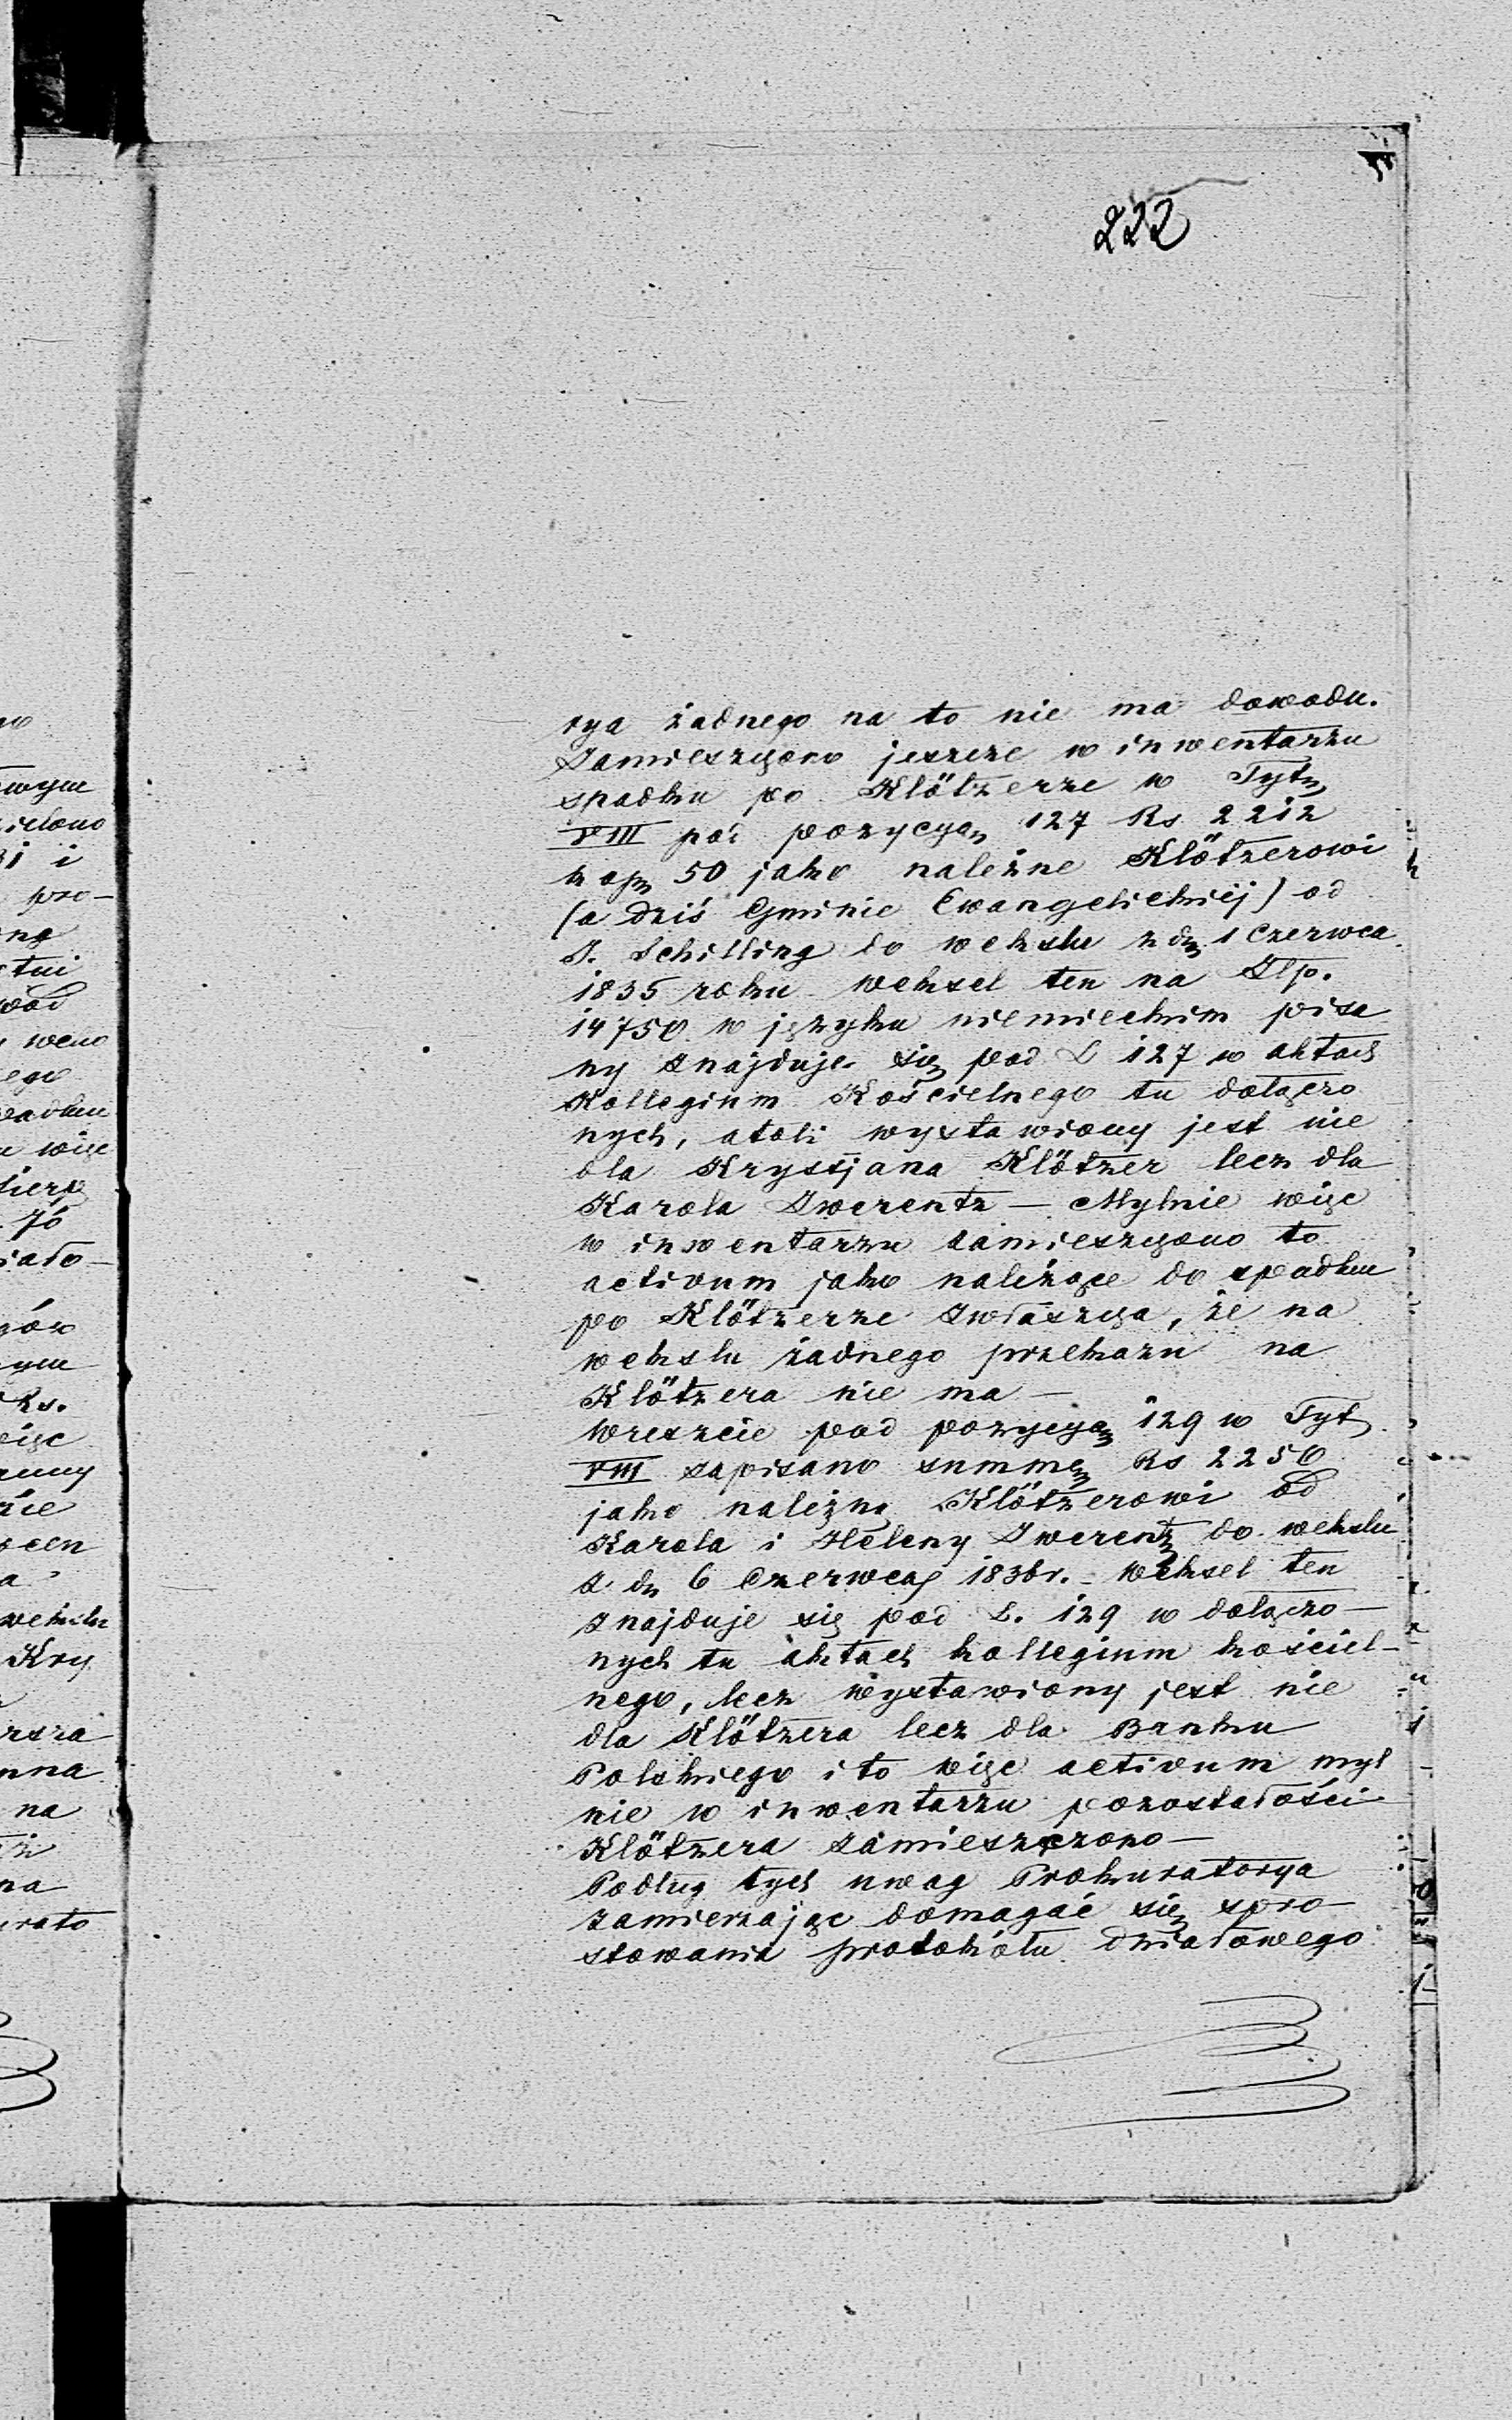 222
rya żadnego na to nie ma dowodu.
Zamieszczono jeszcze w inwentarzu
spadku po Klötzerze w Tyt.
VIII pod pozycyą 127 Rs 2212
kop 50 jako należne Klötzerowi
(a dziś Gminie Ewangelickiéj) od
J. Schilling do wekslu z d. 1 Czerwca
1835 roku weksel ten na Zlp.
14750 w języku niemieckim pisa
ny znajduje się pod L 127 w aktach
Kollegium Kościelnego tu dołączo
nych, atoli wystawiony jest nie
dla Krystjana Klötzer lecz dla
Karola Zwerentz — Mylnie więc
w inwentarzu zamieszczono to
activum jako należące do spadku
po Klötzerze zwłaszcza, że na
wekslu żadnego przekazu na
Klötzera nie ma —
Wreszcie pod pozycyą 129 w Tyt.
VIII zapisano summę Rs 2250
jako należną Klötzerowi od
Karola i Heleny Zwerentz do wekslu
z d. 6 Czerwca 1838 r. — Weksel ten
znajduje się pod L. 129 w dołączo—
nych tu aktach kollegium kościel—
nego, lecz wystawiony jest nie
dla Klötzera lecz dla Banku
Polskiego i to więc activum myl
nie w inwentarzu pozostałości
Klötzera zamieszczono —
Podług tych uwag Prokuratorya
zamierzając domagać się spro—
stowania protokółu działowego